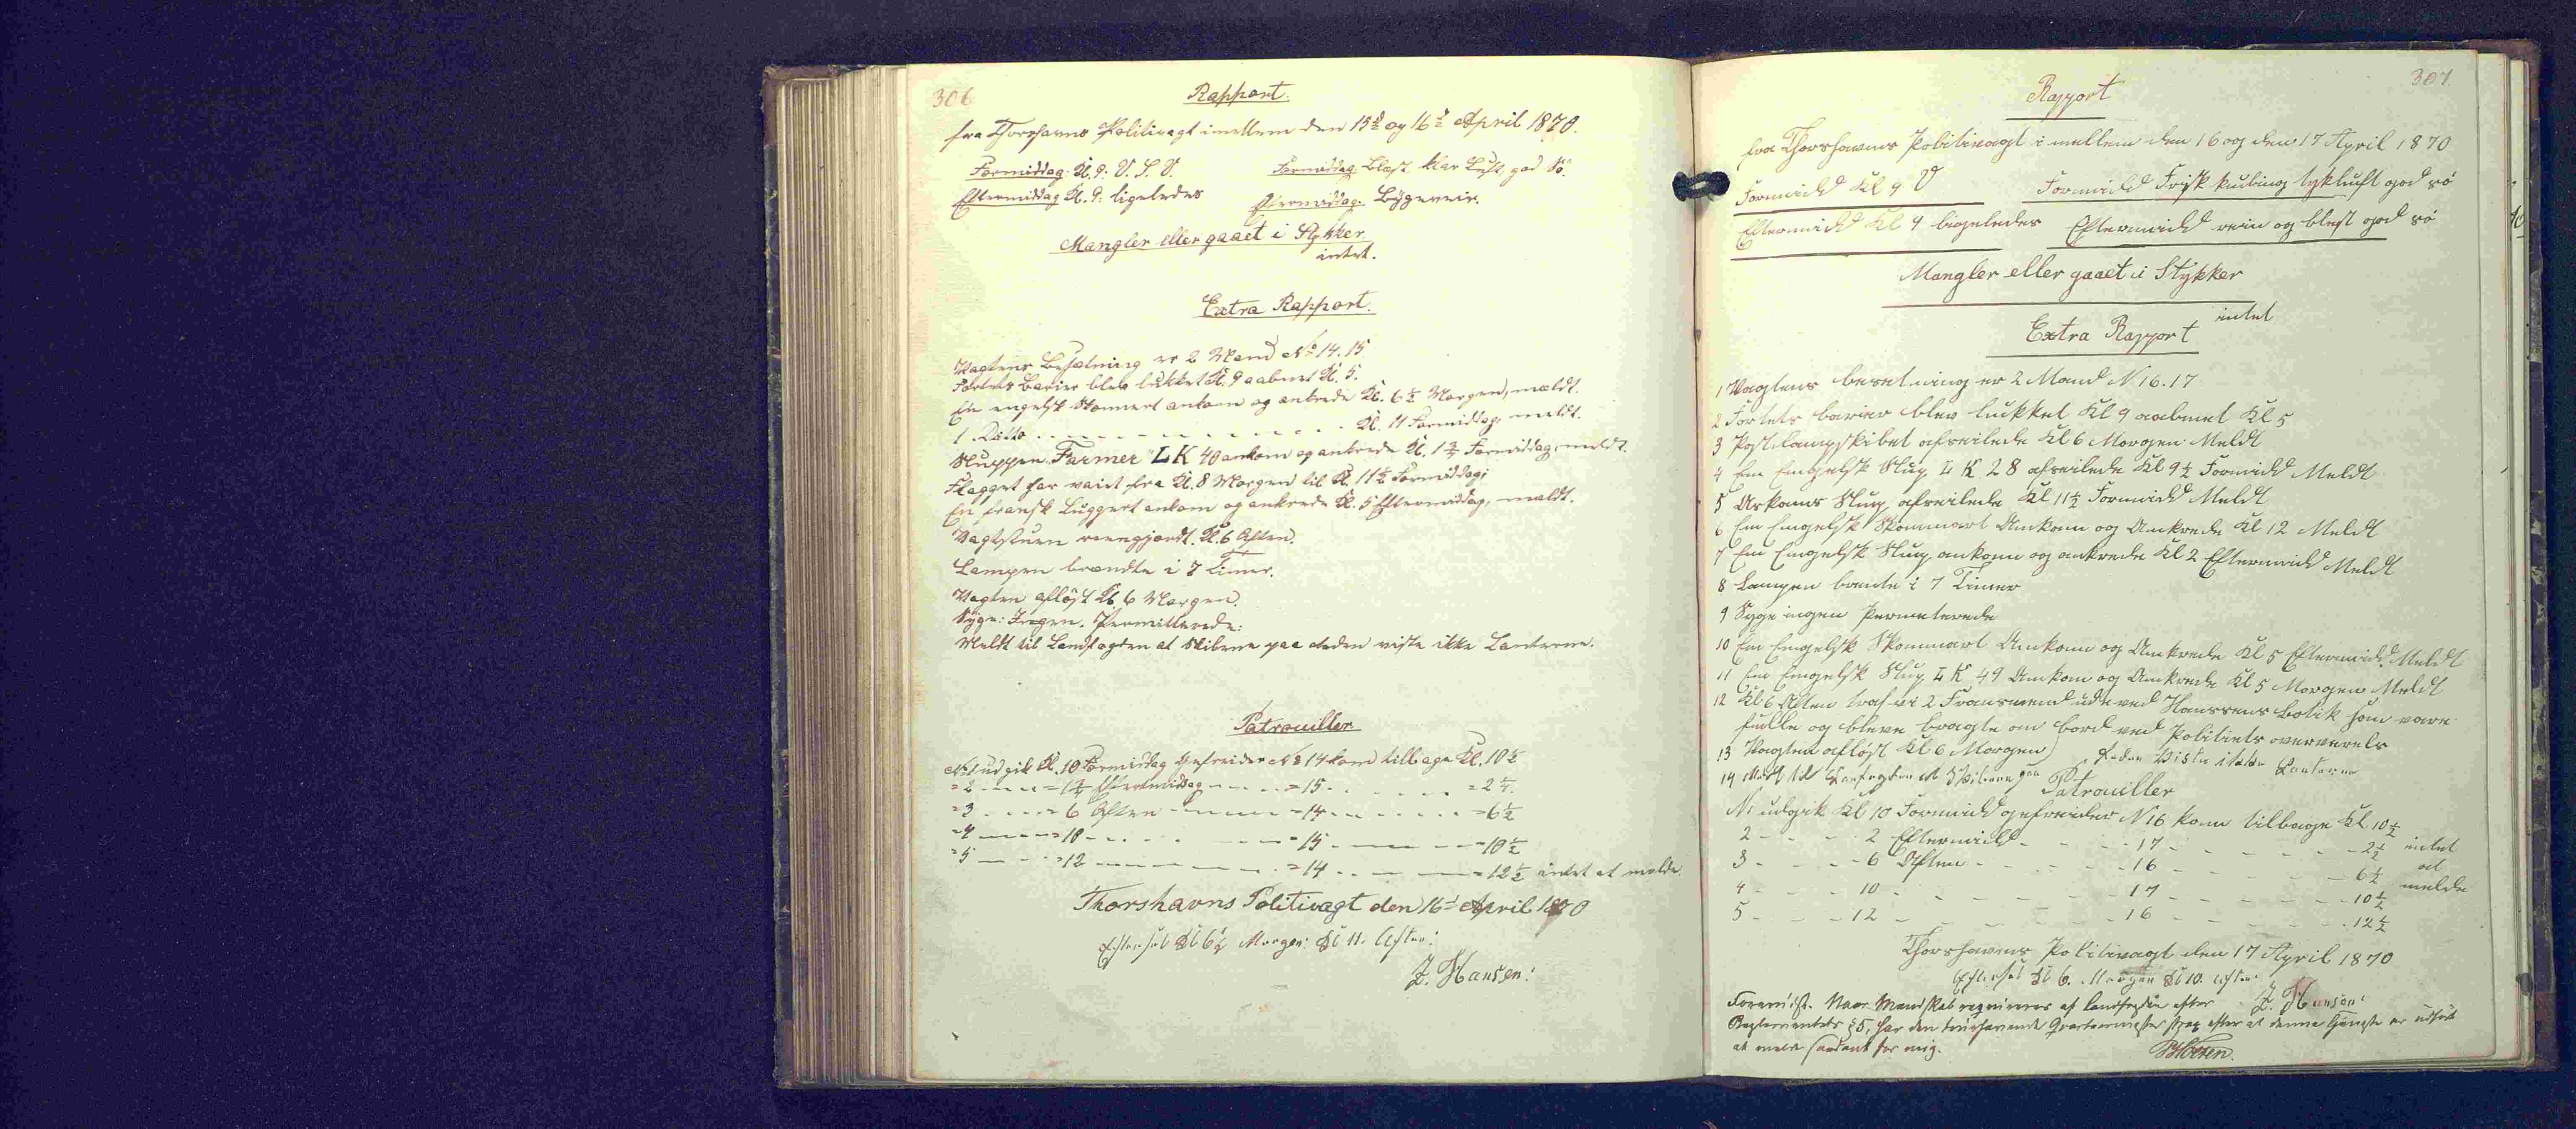 306
Rapport.
fra Thorshavns Politivagt imellem den 15d og 16d April 1870.
Formiddag: Kl. 9: V. S. V. Formiddag: Blæst, klar Luft, god Sö.
Eftermiddag Kl. 9: ligeledes Eftermiddag: Bygeveir.
Mangler eller gaaet i Stykker.
intet.
Extra Rapport.
Vagtens Besætning er 2 Mand No 14. 15.
Fortets Barier blev lukket Kl. 9 aabnet Kl. 5.
En engelsk Skonnert ankom og ankrede Kl. 6½ Morgen, meldt.
1 Ditto Kl. 11 Formiddag, meldt.
Sluppen "Farmer" LK 40 ankom og ankrede Kl. 1¾ Formiddag, meldt.
Flaget har vaiet fra Kl. 8 Morgen til Kl. 11½ Formiddag;
En fransk Luggert ankom og ankrede Kl. 5 Eftermiddag, meldt.
Vagtstuen reengjordt. Kl. 6 Aften.
Lampen brændte i 7 Timer.
Vagten aflöst Kl. 6 Morgen.
Syge: Ingen. Permitterede:
Meldt til Landfogden at Skibene paa Reden viste ikke Lanterne.
Patrouiller
No 1 udgik Kl. 10 Formiddag Gefreider No 14 kom tilbage Kl. 10½
" 2 Eftermiddag 15 2½
" 3 6 Aften 14 6½
" 4 10 15 10½
" 5 12 14 12½ intet at melde.
Thorshavns Politivagt den 16d April 1870
Efterset Kl 6½ Morgen: Kl 11. Aften:
J. Hansen:
307
Rapport
fra Thorshavns Politivagt i mellem den 16 og den 17 April 1870
Formidd Kl 9 V Formidd Frisk kuling tykluft god sö
Eftermidd Kl 9 ligeledes Eftermidd rein og blest god sö
Mangler eller gaaet i Stykker
intet
Extra Rapport
1 Vagtens besetning er 2 Mand N 16. 17
2 Fortets barier blev lukket Kl 9 aabnet Kl 5
3 Postdampskibet afseilede Kl 6 Morgen Meldt
4 En Engelsk Slup L K 28 afseilede Kl 9½ Formidd Meldt
5 Slup afseilede Kl 11½ Formidd Meldt
6 En Engelsk Skonnart Ankom og Ankrede Kl 12 Meldt
7 En Engelsk Slup ankom og ankrede Kl 2 Eftermidd Meldt
8 Lampen brente i 7 Timer
9 Syge ingen Permeterede
10 En Engelsk Skonnart Ankom og Ankrede Kl 5 Eftermidd Meldt
11 En Engelsk Slup L K 49 Ankom og Ankrede Kl 5 Morgen Meldt
12 Kl 6 Aften traf vi 2 Fransmend ude ved Hanssens botik som vare
fulle og bleve bragte om bord ved Politiets oververels
13 Vagten aflöst Kl 6 Morgen
14 Meldt til Landfogden at Skibene paa Reden Viste ikke Lanterne
Patrouiller
N 1 udgik Kl 10 Formidd gefreider N 16 kom tilbage Kl 10½
2 2 Eftermidd 17 2½ intet
3 6 Aften 16 6½ at
4 10 17 10½ melde
5 12 16 12½
Thorshavns Politivagt den 17 April 1870
Efterset Kl 6. Morgen Kl 10. Aften.
J. Hansen:
Forevist. Naar Mandskab requireres af Landfogden efter
Reglementets § 5, har den tourhavende Qvarteermester strax efter at denne Tjeneste er udfört
at melde saadant for mig.